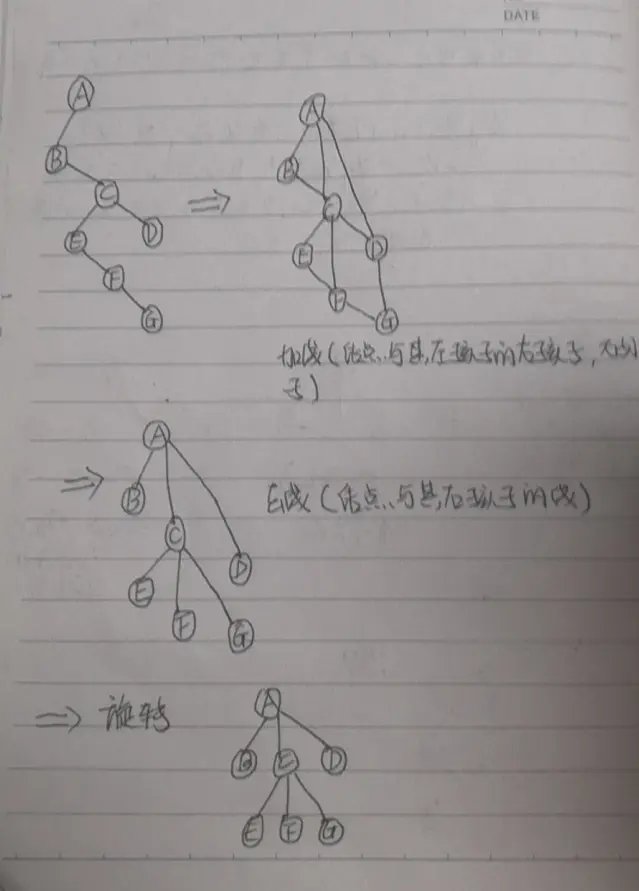 DATE
A
A
B
B
C
C
⇒
E
D
E
D
F
F
G
G
加线(结点与其左孩子的右孩子,
子)
⇒
A
B
去线(结点与其右孩子的线)
C
D
E
F
G
⇒ 旋转
A
B
E
D
E
F
G